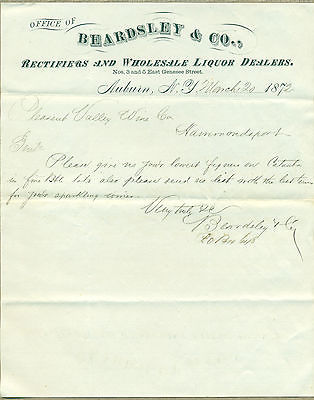 OFFICE OF
BEARDSLEY & CO.,
RECTIFIERS AND WHOLESALE LIQUOR DEALERS.
Nos. 3 and 5 East Genesee Street.
Auburn, N. Y. March 20 1872
Pleasant Valley Wine Co
Hammondsport
Gents
Please give us your lowest figures on Catawba
in five Bbl lots also please send us list with the best terms
for your sparkling wines
Very truly &c
Beardsley & Co
PO Box